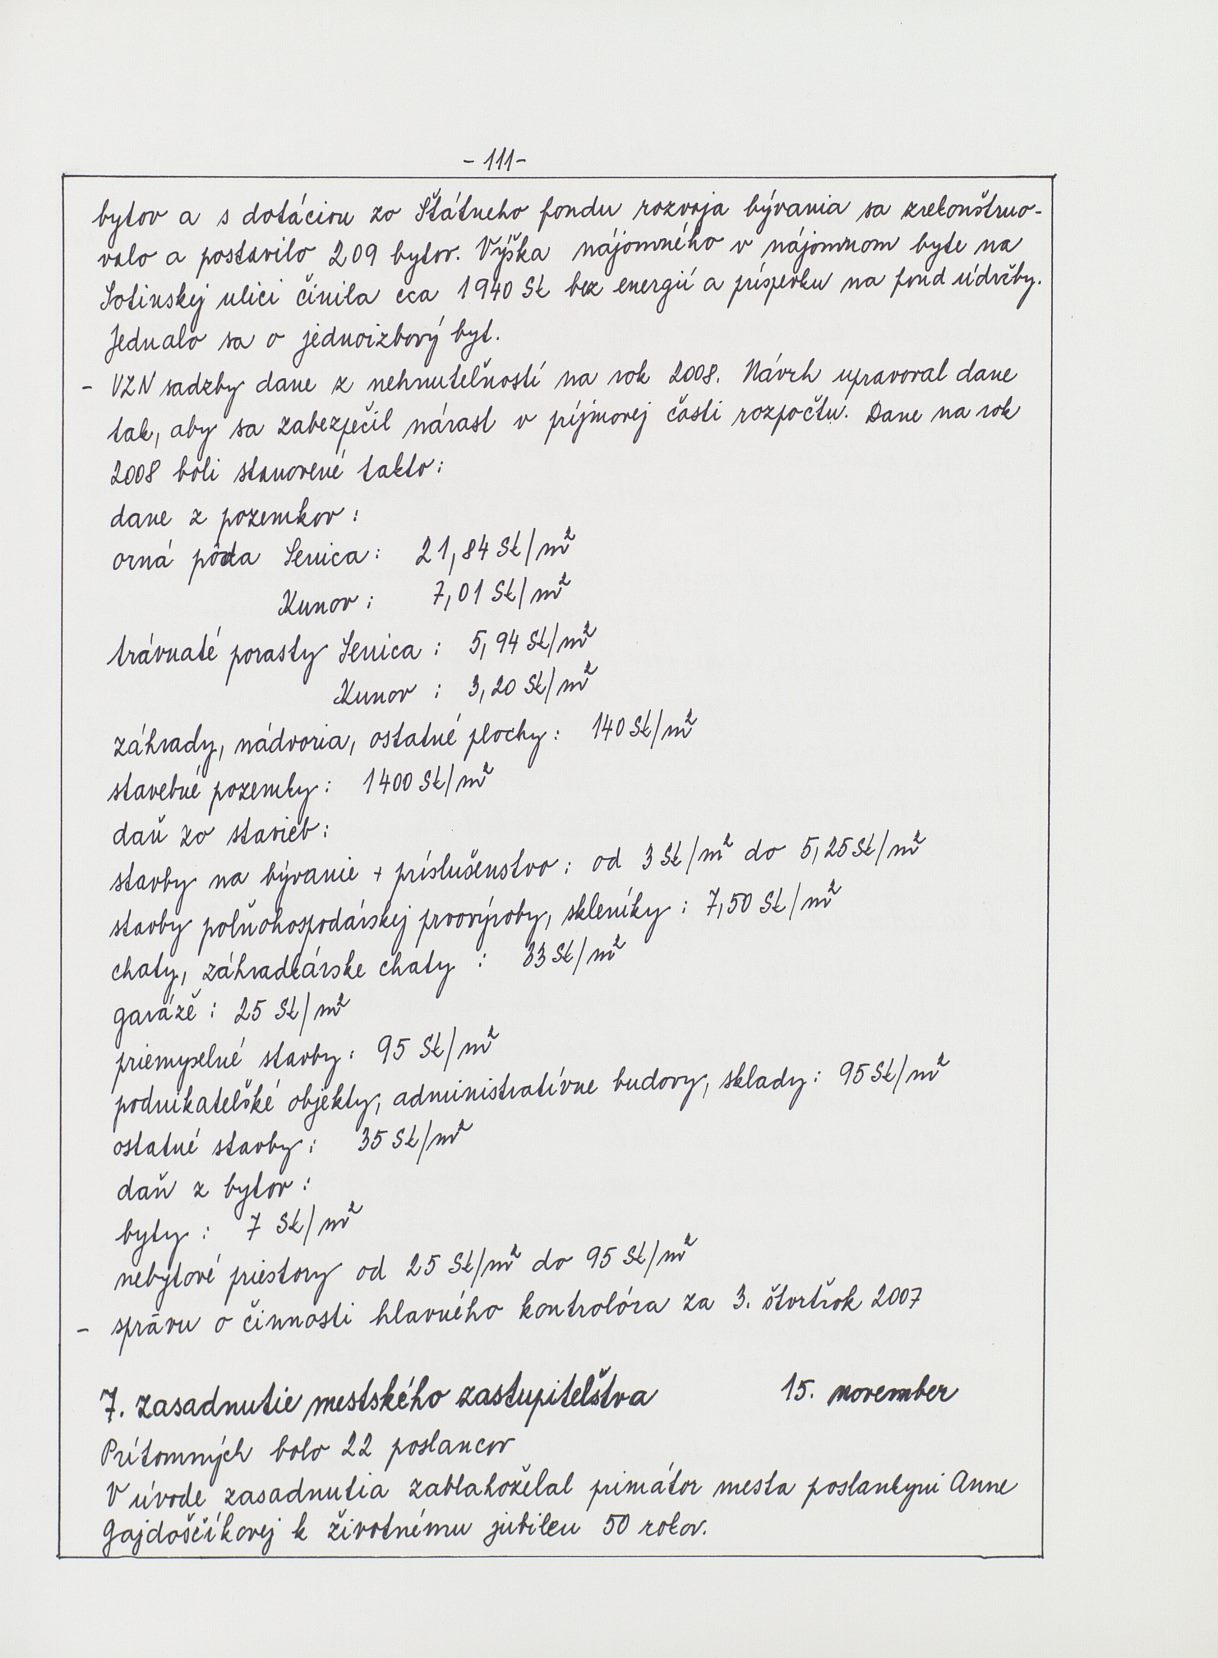 - 111-
bytov a s dotáciou zo Štátneho fondu rozvoja bývania sa zrekonštruo-
valo a postavilo 209 bytov. Výška nájomného v nájomnom byte na
Sotinskej ulici činila cca 1940 Sk bez energií a príspevku na fond údržby.
Jednalo sa o jednoizbový byt.
- VZN sadzby dane z nehnuteľností na rok 2008. Návrh upravoval dane
tak, aby sa zabezpečil nárast v príjmovej časti rozpočtu. Dane na rok
2008 boli stanovené takto:
dane z pozemkov:
orná pôda Senica: 21,84 Sk/m²
Kunov: 7,01 Sk/m²
trávnaté porasty Senica: 5,94 Sk/m²
Kunov: 3,20 Sk/m²
záhrady, nádvoria, ostatné plochy: 140 Sk/m²
stavebné pozemky: 1400 Sk/m²
daň zo stavieb:
stavby na bývanie + príslušenstvo: od 3 Sk/m² do 5,25 Sk/m²
stavby poľnohospodárskej prvovýroby, skleníky: 7,50 Sk/m²
chaty, záhradkárske chaty: 33 Sk/m²
garáže: 25 Sk/m²
priemyselné stavby: 95 Sk/m²
podnikateľské objekty, administratívne budovy, sklady: 95 Sk/m²
ostatné stavby: 35 Sk/m²
daň z bytov:
byty: 7 Sk/m²
nebytové priestory od 25 Sk/m² do 95 Sk/m²
- správu o činnosti hlavného kontrolóra za 3. štvrťrok 2007
7. zasadnutie mestského zastupiteľstva 15. november
Prítomných bolo 22 poslancov
V úvode zasadnutia zablahoželal primátor mesta poslankyni Anne
Gajdoščíkovej k životnému jubileu 50 rokov.